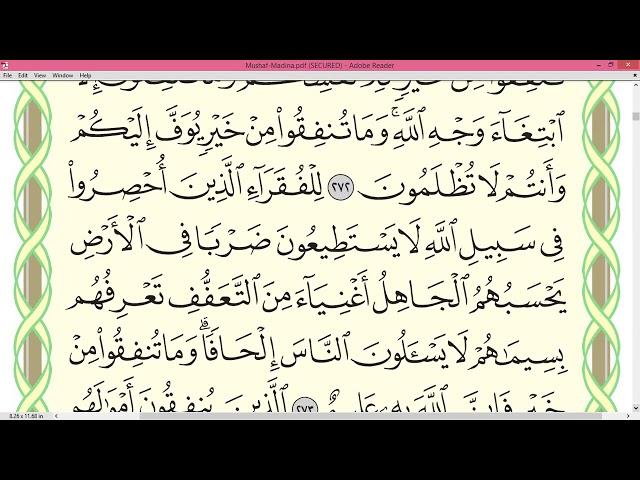 Mushaf-Madina.pdf (SECURED) - Adobe Reader
File Edit View Window Help
ٱبۡتِغَآءَ وَجۡهِ ٱللَّهِۚ وَمَا تُنفِقُواْ مِنۡ خَيۡرٖ يُوَفَّ إِلَيۡكُمۡ
وَأَنتُمۡ لَا تُظۡلَمُونَ ٢٧٢ لِلۡفُقَرَآءِ ٱلَّذِينَ أُحۡصِرُواْ
فِي سَبِيلِ ٱللَّهِ لَا يَسۡتَطِيعُونَ ضَرۡبٗا فِي ٱلۡأَرۡضِ
يَحۡسَبُهُمُ ٱلۡجَاهِلُ أَغۡنِيَآءَ مِنَ ٱلتَّعَفُّفِ تَعۡرِفُهُم
بِسِيمَٰهُمۡ لَا يَسۡـَٔلُونَ ٱلنَّاسَ إِلۡحَافٗاۗ وَمَا تُنفِقُواْ مِنۡ
خَيۡرٖ فَإِنَّ ٱللَّهَ بِهِۦ عَلِيمٌ ٢٧٣ ٱلَّذِينَ يُنفِقُونَ أَمۡوَٰلَهُم
8.26 x 11.68 in